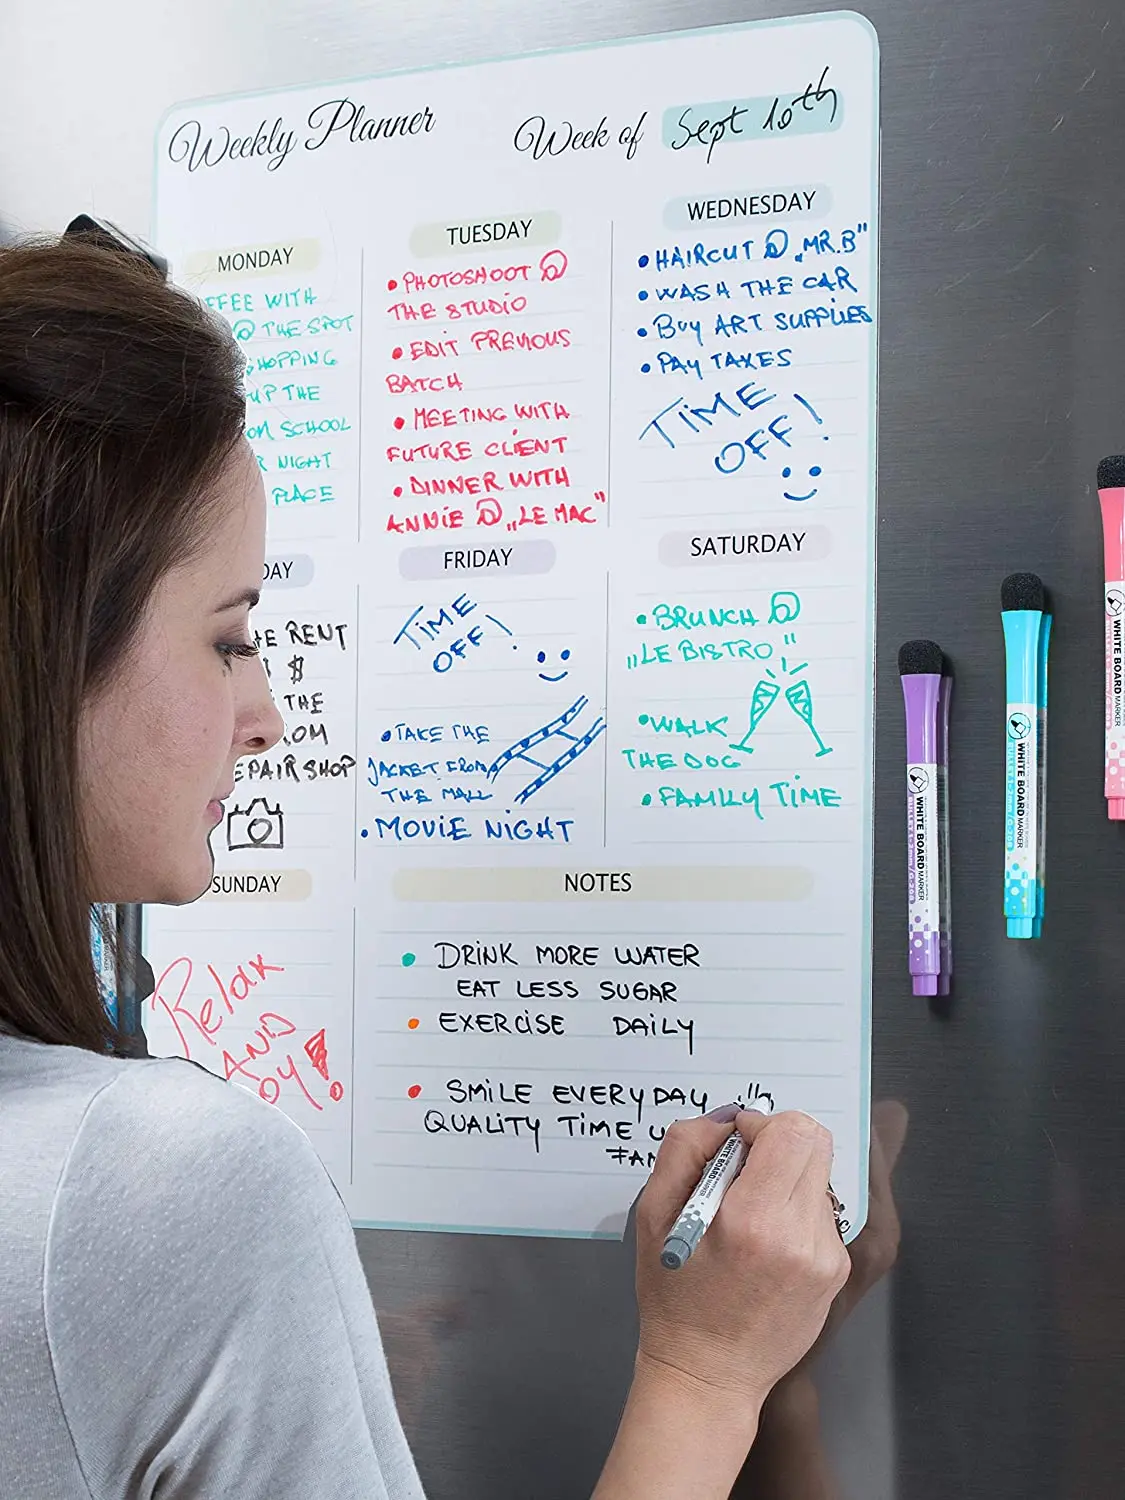 Weekly Planner
Week of Sept 10th
MONDAY
WITH
@ THE SPOT
THE
SCHOOL
NIGHT
PLACE
TUESDAY
• PHOTOSHOOT @
THE STUDIO
• EDIT PREVIOUS
BATCH
• MEETING WITH
FUTURE CLIENT
• DINNER WITH
ANNIE @ „LE MAC"
WEDNESDAY
• HAIRCUT @ „MR.B"
• WASH THE CAR
• BUY ART SUPPLIES
• PAY TAXES
TIME
OFF!
RENT
$
THE
SHOP
FRIDAY
TIME
OFF!
• TAKE THE
JACKET FROM
THE MALL
• MOVIE NIGHT
SATURDAY
• BRUNCH @
„LE BISTRO"
• WALK
THE DOG
• FAMILY TIME
SUNDAY
Relax
AND
NOTES
• DRINK MORE WATER
EAT LESS SUGAR
• EXERCISE DAILY
• SMILE EVERYDAY
QUALITY TIME
WHITE BOARD MARKER
WHITE BOARD MARKER
WHITE BOARD MARKER
WHITE BOARD MARKER